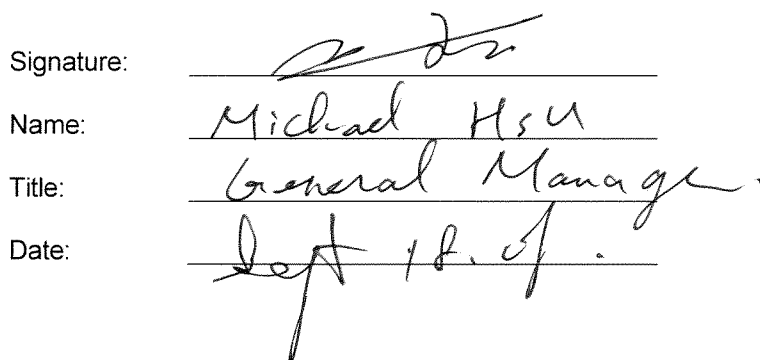 Signature:
Name: Michael Hsu
Title: General Manager
Date: Sept 18.